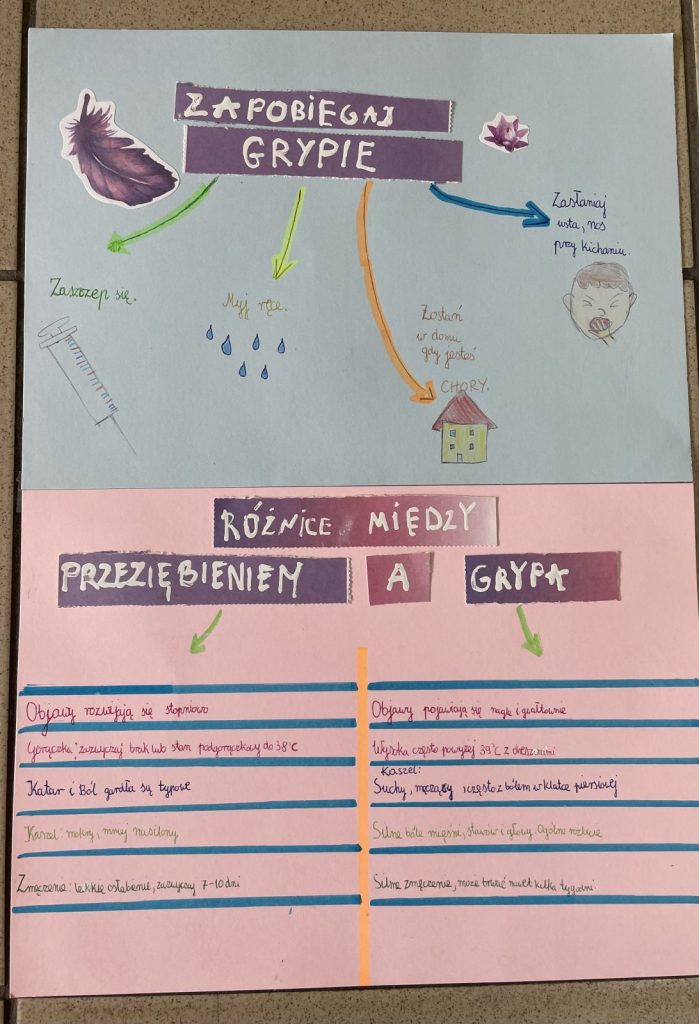 ZAPOBIEGAJ
GRYPIE
Zasłaniaj
usta, nos
przy kichaniu.
Zaszczep się.
Myj ręce.
Zostań
w domu
gdy jesteś
CHORY.
RÓŻNICE MIĘDZY
PRZEZIĘBIENIEM A GRYPĄ
Objawy rozwijają się stopniowo
Gorączka: zazwyczaj brak lub stan podgorączkowy do 38°C
Katar i Ból gardła są typowe
Kaszel: mokry, mniej nasilony
Zmęczenie: lekkie osłabienie, zazwyczaj 7-10 dni
Objawy pojawiają się nagle i gwałtownie
Wysoka często powyżej 39°C z dreszczami
Kaszel:
Suchy, męczący i często z bólem w klatce piersiowej
Silne bóle mięśni, stawów i głowy. Ogólne rozbicie
Silne zmęczenie, może trwać nawet kilka tygodni.